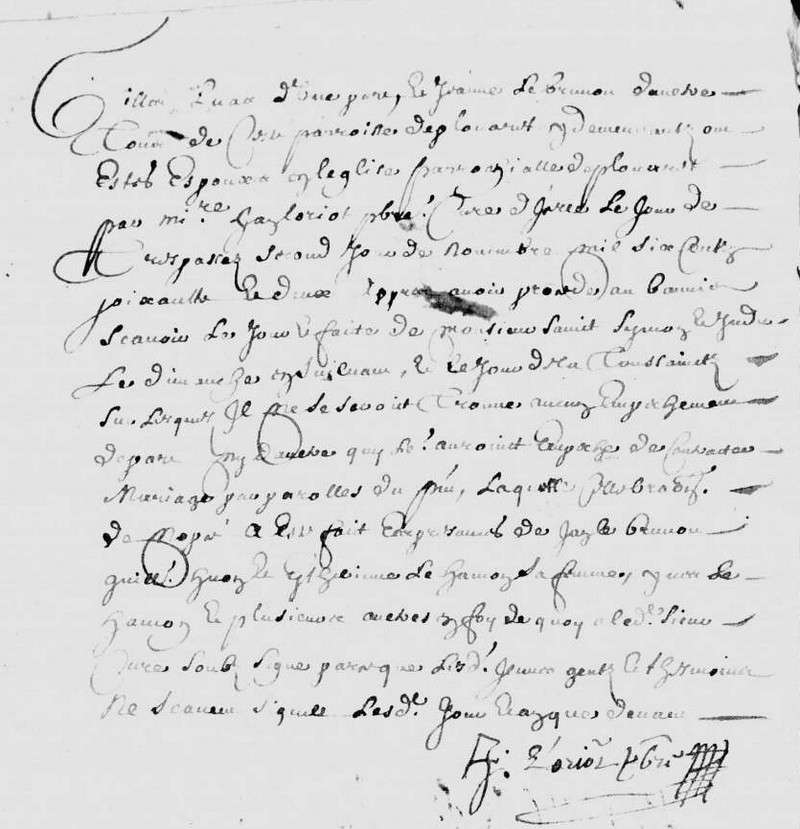 Gilles d'une part, et Jeanne Le brunon d'autre
Tous de Ceste parroisse de plouasne y demeurantz ont
Estés Espouzes en leglise parrochialle de plouasne
par mi.re loriot pbre. Cure d'icelle Le Jour de
Trespassez second Jour de Novembre mil six centz
soixante et deux Appres avoir procedé au bannies
Scavoir Le Jour & faite de monsieur sainct Symon et Jude
Le dimanche ensuivant, et Le Jour de la Toussainctz
Sur lesquelz Il ne se seroint Trouvé aucuns Empeschemens
de part ny d'aultre qui les auroint Empesche de Contracter
Mariage par parolles du pnt, Laquelle Cellebration
de Mage A Esté fait En presances de Jan Le brunon
guill. et Le Hamon sa femme, Le
Hamon Et plusieurs aultres en foy de quoy a led. Sieur
Cure soubz signé parce que lesd. Jeunes gentz et thesmoins
Ne scavent signer Lesd. Jour et an que devant
J: Loriot pbre